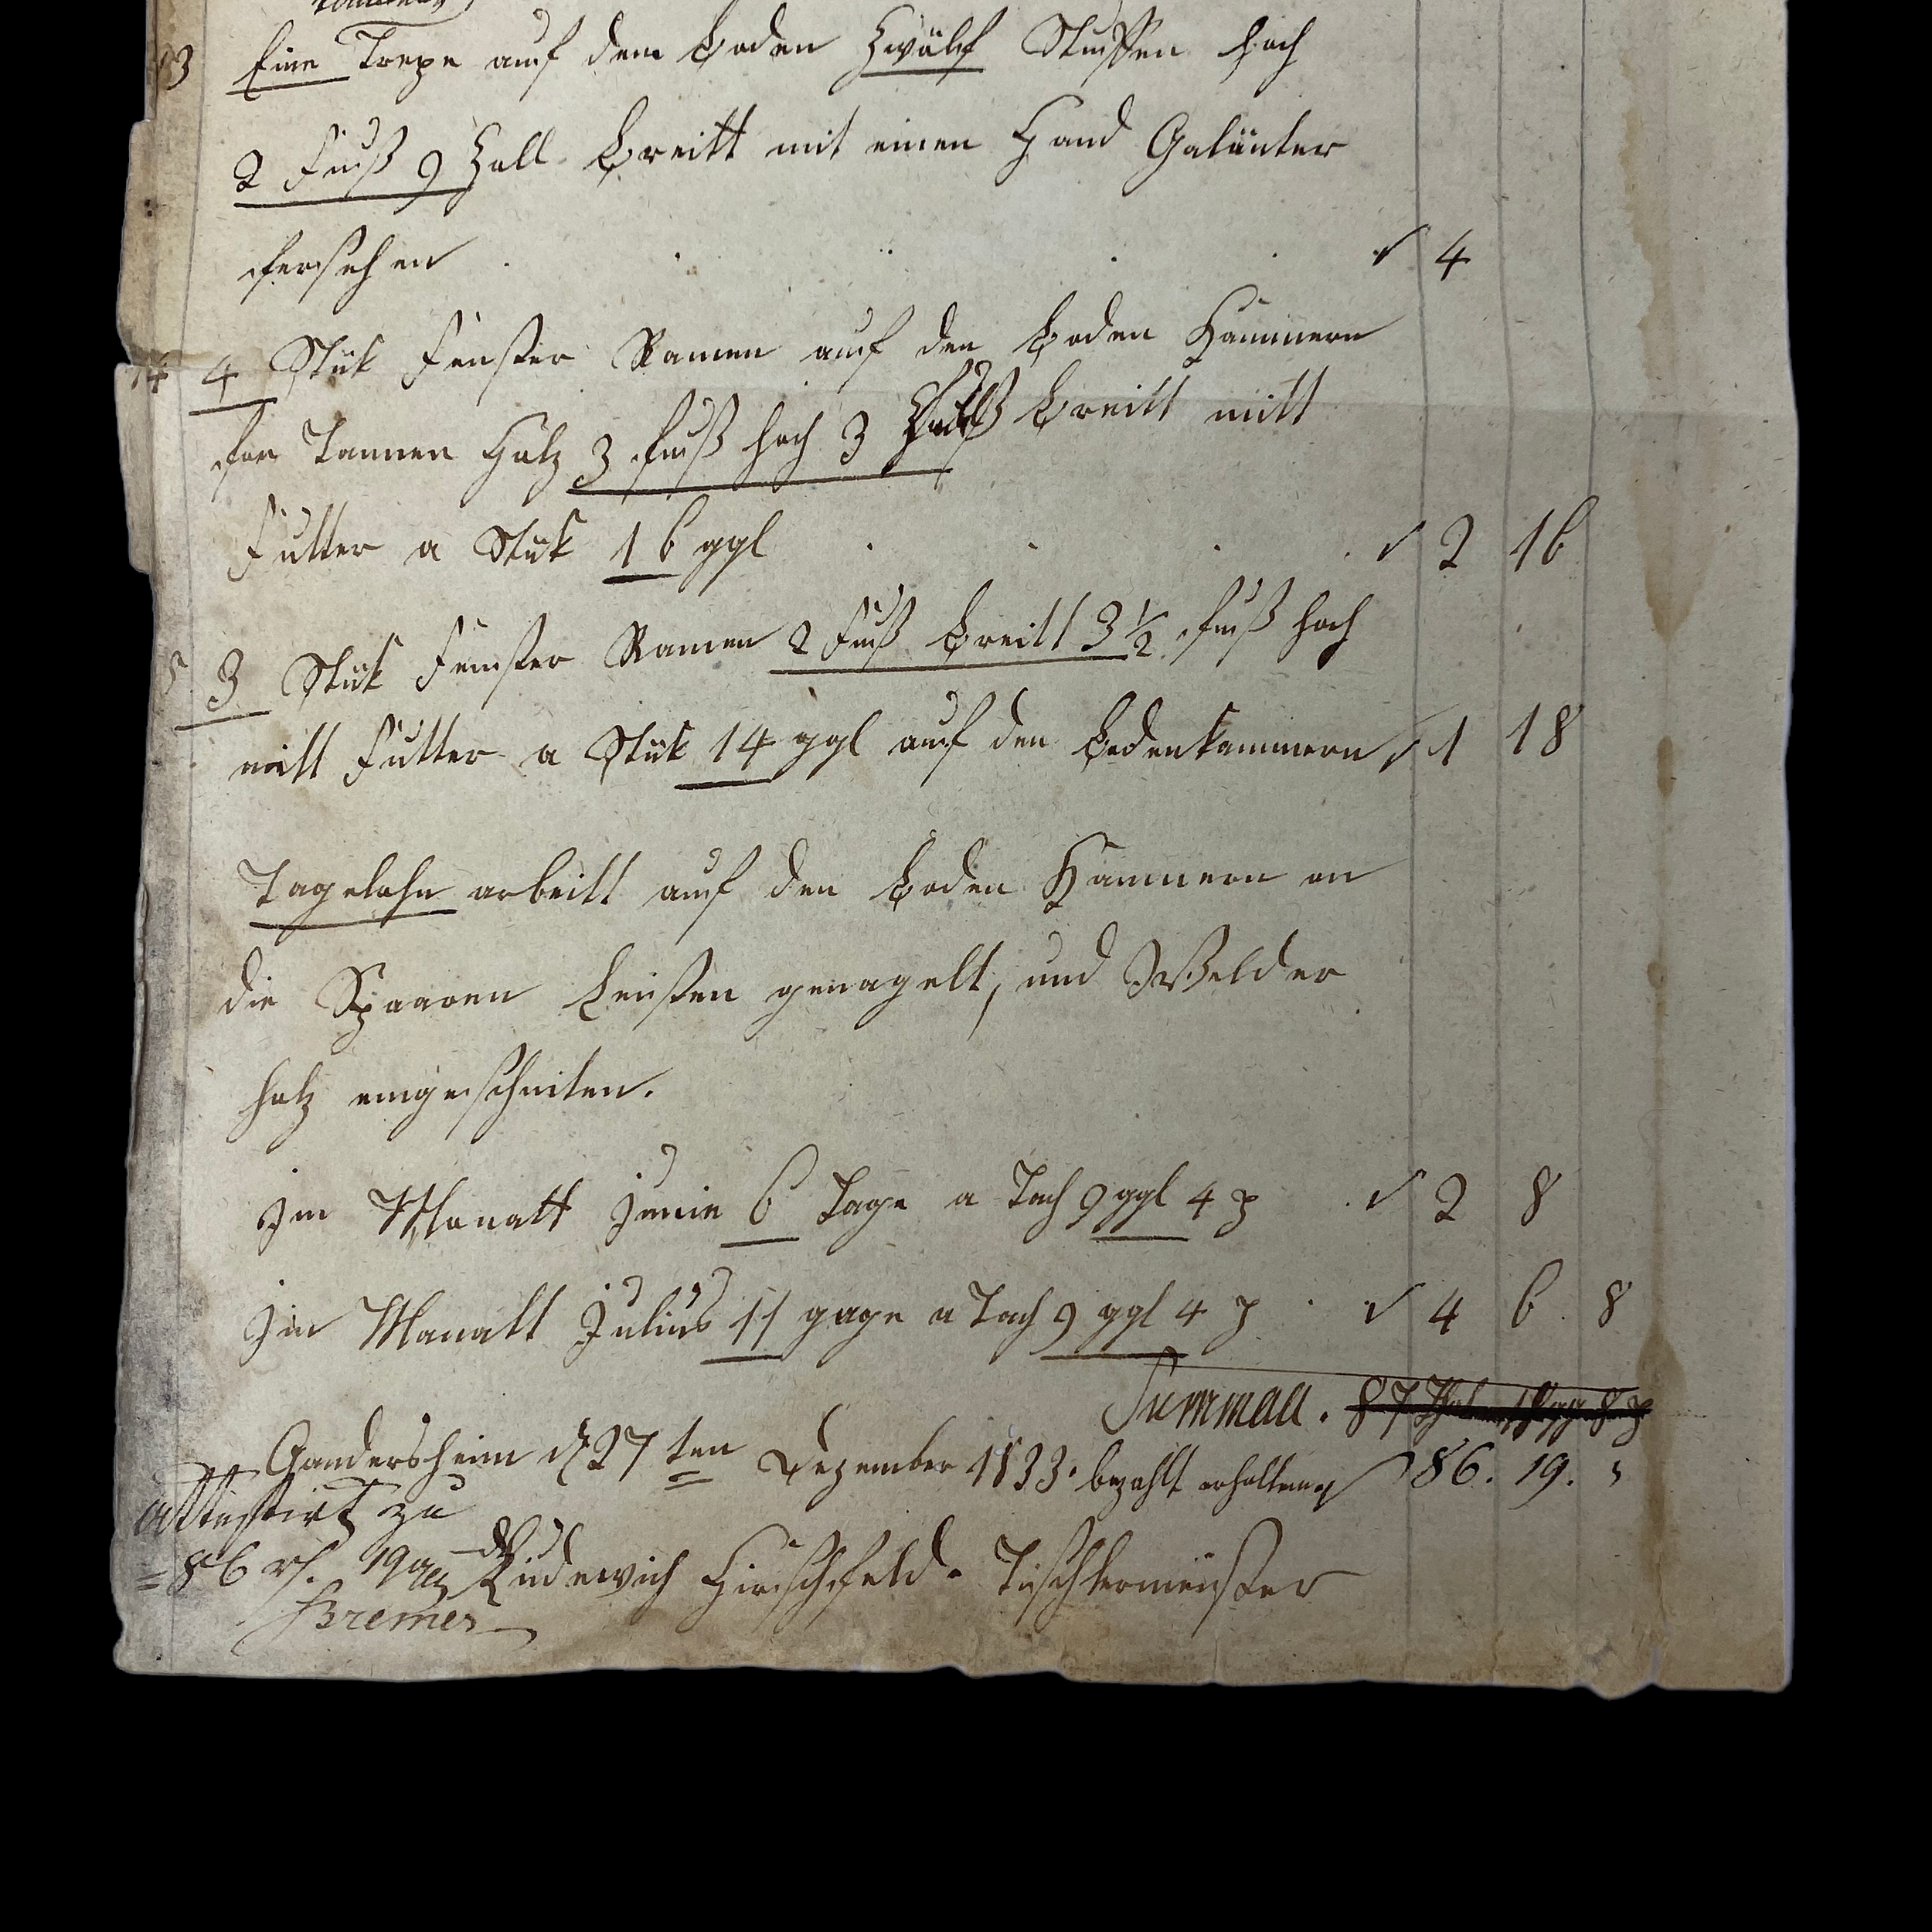 13 Eine Trepe auf dem boden Zwälf Stuffen hoch
2 Fuß 9 Zoll breitt mit einen Hand Galänter
fersehen . . . . . ✓ 4
14 4 Stük Fenster Ramen auf den boden Kammern
fon Tannen Holz 3 fuß hoch 3 Fuß breitt mitt
Futter a Stük 16 ggl . . . . ✓ 2 16
5 3 Stük Fenster Ramen 2 Fuß breitt 3 1/2 fuß hoch
mitt Futter a Stük 14 ggl auf den bodenkammern ✓ 1 18
Tagelohn arbeitt auf den boden Kammern an
die Spaaren Leisten genagelt, und Welder
holz eingeschniten.
Im Monatt Junie 6 Tage a Tach 9 ggl 4 ₰ . ✓ 2 8
Im Monatt Julius 11 gage a Tach 9 ggl 4 ₰ . ✓ 4 6 8
Summaa. 87 Thaler ggl 8 ₰
Gandersheim d 27 ten Dezember 1833. bezahlt erhalten 86. 19. "
Attestirt zu
= 86 rh. 19 ggl Ludewich Hirschfeld. Tischlermeister
Bremer